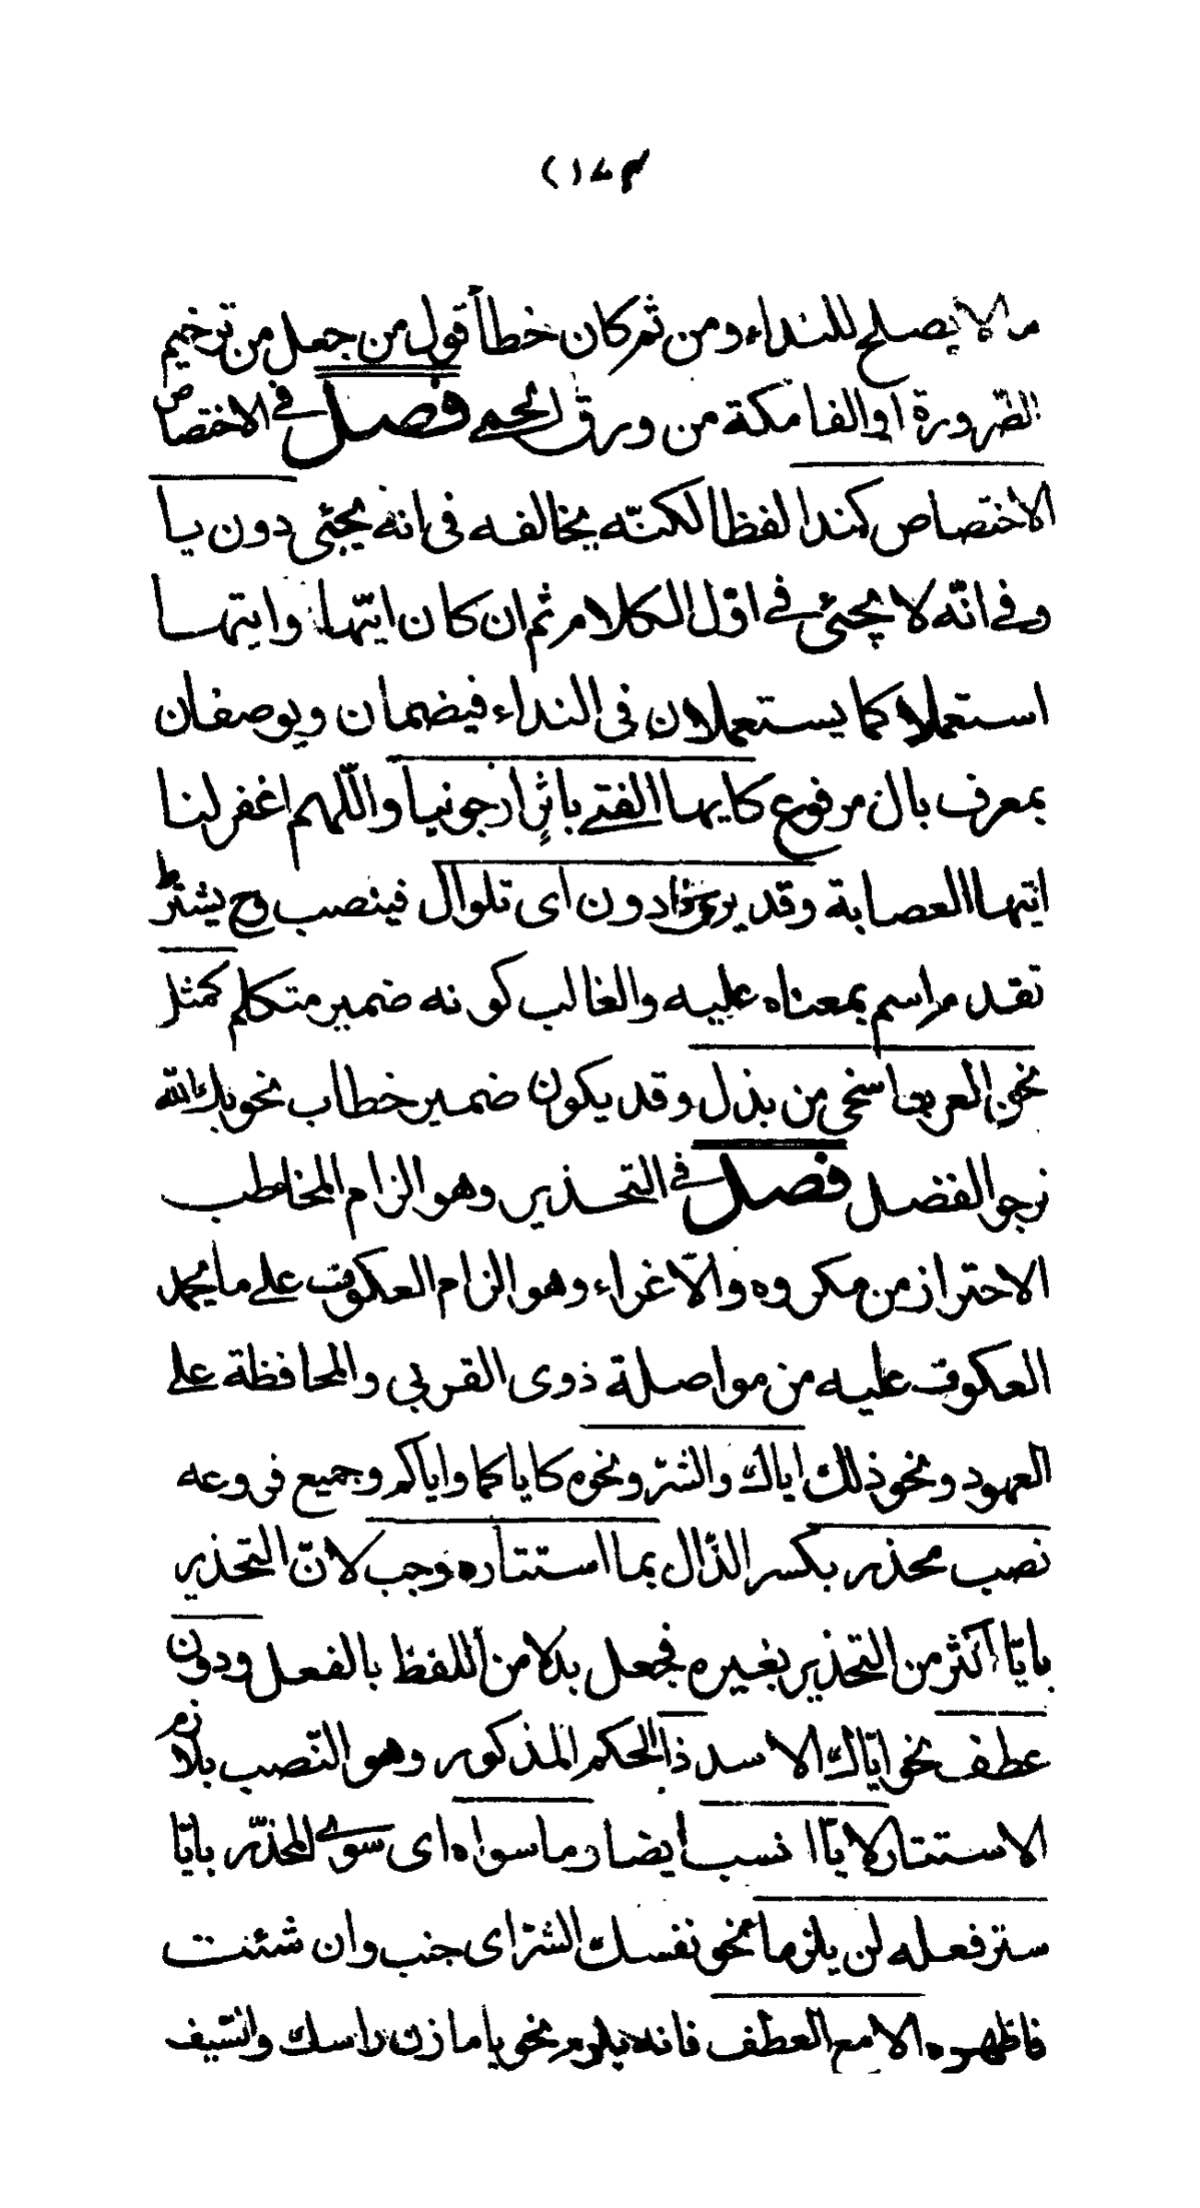 (١٧٣
ما لا يصلح للنداء ومن ثم كان خطأ قول من جعل من ترخيم
الضرورة اوالفا مكة من ورق الحمى فصل فى الاختصاص
الاختصاص كنداء لفظا لكنّه يخالفه فى انه يجئى دون يا
وفى انّه لا يجئى فى اوّل الكلام ثم ان كان ايّها وايتها
استعملا كما يستعملان فى النداء فيضمان ويوصفان
بمعرف بال مرفوع كايها الفتى باثر ارجونيا واللّهم اغفر لنا
ايتها العصابة وقد يرى ذا دون اى تلوال فينصب وح يشترط
تقدم اسم بمعناه عليه والغالب كونه ضمير متكلم كمثل
نحن العرب اسخى من بذل وقد يكون ضمير خطاب نحو بك الله
نرجو الفضل فصل فى التحذير وهو الزام المخاطب
الاحتراز من مكروه والاغراء وهو الزام العكوف على ما يحمد
العكوف عليه من مواصلة ذوى القربى والمحافظة على
العهود ونحو ذلك اياك والشر ونحوه كاياكما واياكم وجميع فروعه
نصب محذر بكسر الذّال بما استتاره وجب لانّ التحذير
بايّا اكثر من التحذير بغيره فجعل بدلا من اللفظ بالفعل ودون
عطف نحو ايّاك الاسد ذا الحكم المذكور وهو النّصب بلازم
الاستتار لايّا انسب ايضا وما سواه اى سوى المحذّر بايّا
ستر فعله لن يلزما نحو نفسك الشرّ اى جنب وان شئت
فاظهره الا مع العطف فانه يلزم نحو يا ماز راسك والسّيف